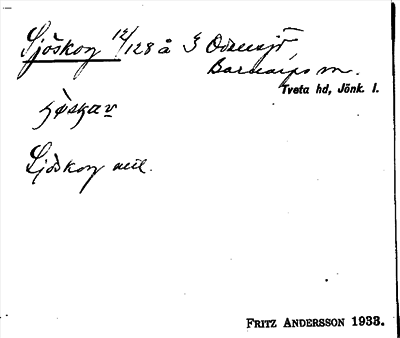 Sjöskog 12/128 å S Odensjö,
Barnarps sn.
Tveta hd, Jönk. l.
Sjöskog
FRITZ ANDERSSON 1933.